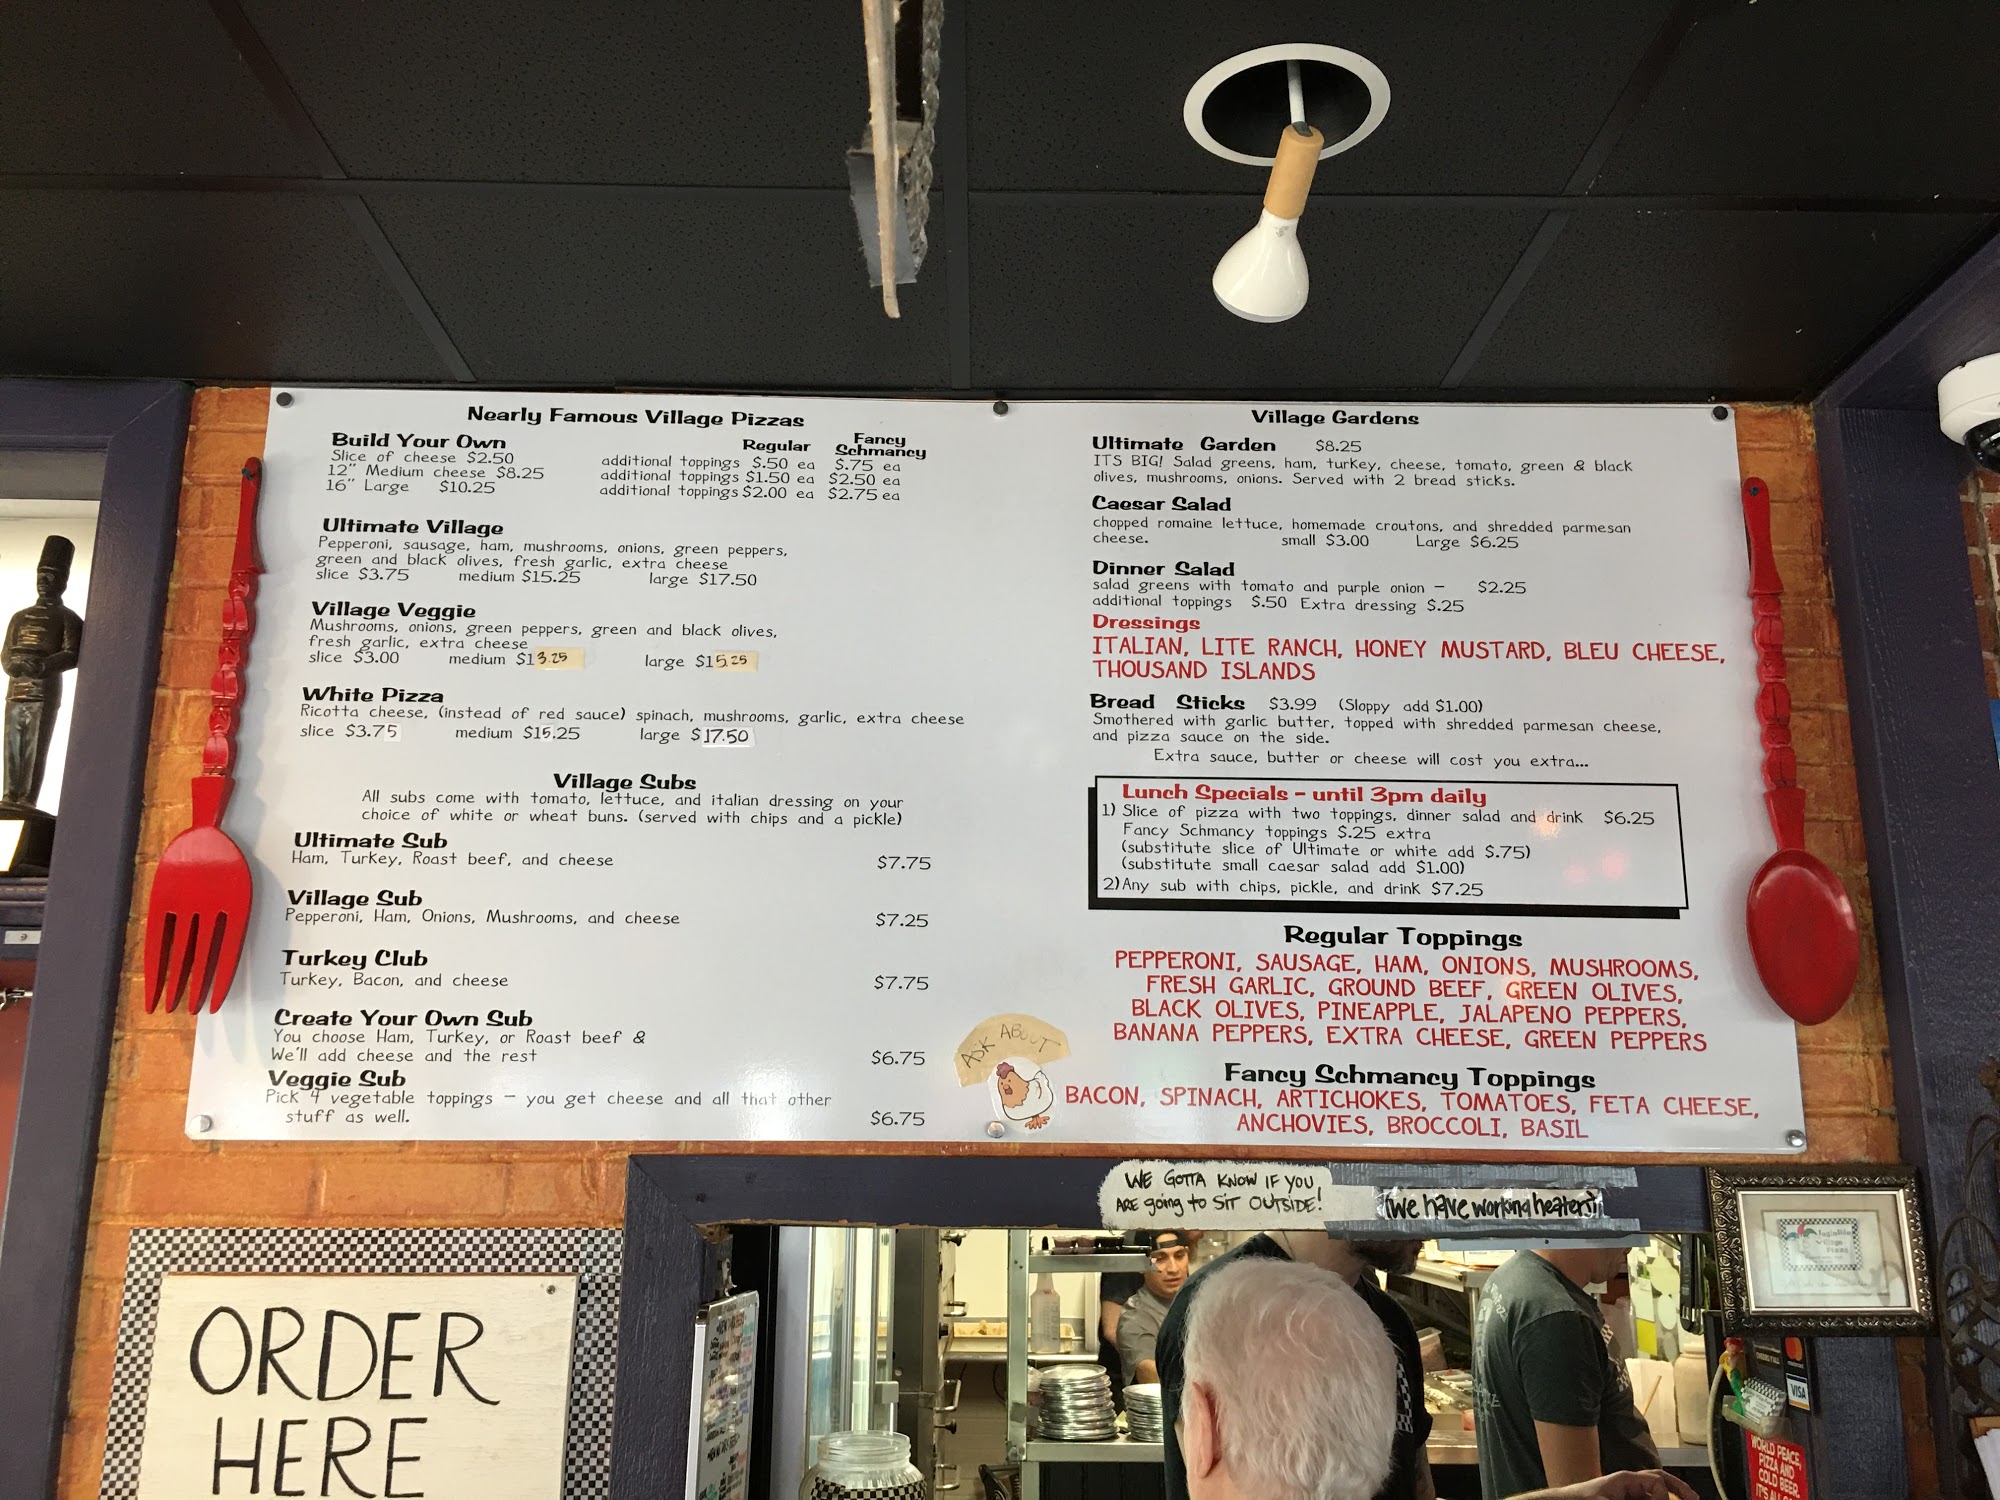 Nearly Famous Village Pizzas
Build Your Own
Regular
Fancy
Schmancy
Slice of cheese $2.50
additional toppings $.50 ea $.75 ea
12" Medium cheese $8.25
additional toppings $1.50 ea $2.50 ea
16" Large $10.25
additional toppings $2.00 ea $2.75 ea
Ultimate Village
Pepperoni, sausage, ham, mushrooms, onions, green peppers,
green and black olives, fresh garlic, extra cheese
slice $3.75 medium $15.25 large $17.50
Village Veggie
Mushrooms, onions, green peppers, green and black olives,
fresh garlic, extra cheese
slice $3.00 medium $13.25 large $15.25
White Pizza
Ricotta cheese, (instead of red sauce) spinach, mushrooms, garlic, extra cheese
slice $3.75 medium $15.25 large $17.50
Village Subs
All subs come with tomato, lettuce, and italian dressing on your
choice of white or wheat buns. (served with chips and a pickle)
Ultimate Sub
Ham, Turkey, Roast beef, and cheese $7.75
Village Sub
Pepperoni, Ham, Onions, Mushrooms, and cheese $7.25
Turkey Club
Turkey, Bacon, and cheese $7.75
Create Your Own Sub
You choose Ham, Turkey, or Roast beef &
We'll add cheese and the rest $6.75
Veggie Sub
Pick 4 vegetable toppings - you get cheese and all that other
stuff as well. $6.75
ASK ABOUT
Village Gardens
Ultimate Garden $8.25
ITS BIG! Salad greens, ham, turkey, cheese, tomato, green & black
olives, mushrooms, onions. Served with 2 bread sticks.
Caesar Salad
chopped romaine lettuce, homemade croutons, and shredded parmesan
cheese. small $3.00 Large $6.25
Dinner Salad
salad greens with tomato and purple onion - $2.25
additional toppings $.50 Extra dressing $.25
Dressings
ITALIAN, LITE RANCH, HONEY MUSTARD, BLEU CHEESE,
THOUSAND ISLANDS
Bread Sticks $3.99 (Sloppy add $1.00)
Smothered with garlic butter, topped with shredded parmesan cheese,
and pizza sauce on the side.
Extra sauce, butter or cheese will cost you extra...
Lunch Specials - until 3pm daily
1) Slice of pizza with two toppings, dinner salad and drink $6.25
Fancy Schmancy toppings $.25 extra
(substitute slice of Ultimate or white add $.75)
(substitute small caesar salad add $1.00)
2) Any sub with chips, pickle, and drink $7.25
Regular Toppings
PEPPERONI, SAUSAGE, HAM, ONIONS, MUSHROOMS,
FRESH GARLIC, GROUND BEEF, GREEN OLIVES,
BLACK OLIVES, PINEAPPLE, JALAPENO PEPPERS,
BANANA PEPPERS, EXTRA CHEESE, GREEN PEPPERS
Fancy Schmancy Toppings
BACON, SPINACH, ARTICHOKES, TOMATOES, FETA CHEESE,
ANCHOVIES, BROCCOLI, BASIL
WE GOTTA KNOW IF YOU
ARE going to SIT OUTSIDE!
(we have working heaters)
Village
Pizza
ORDER
HERE
mastercard
VISA
WORLD PEACE,
PIZZA AND
COLD BEER.
IT'S ALL